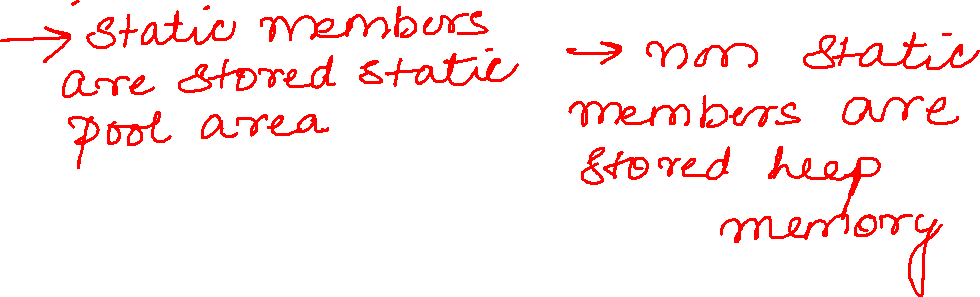 → static members
are stored static
pool area
→ non static
members are
stored heep
memory